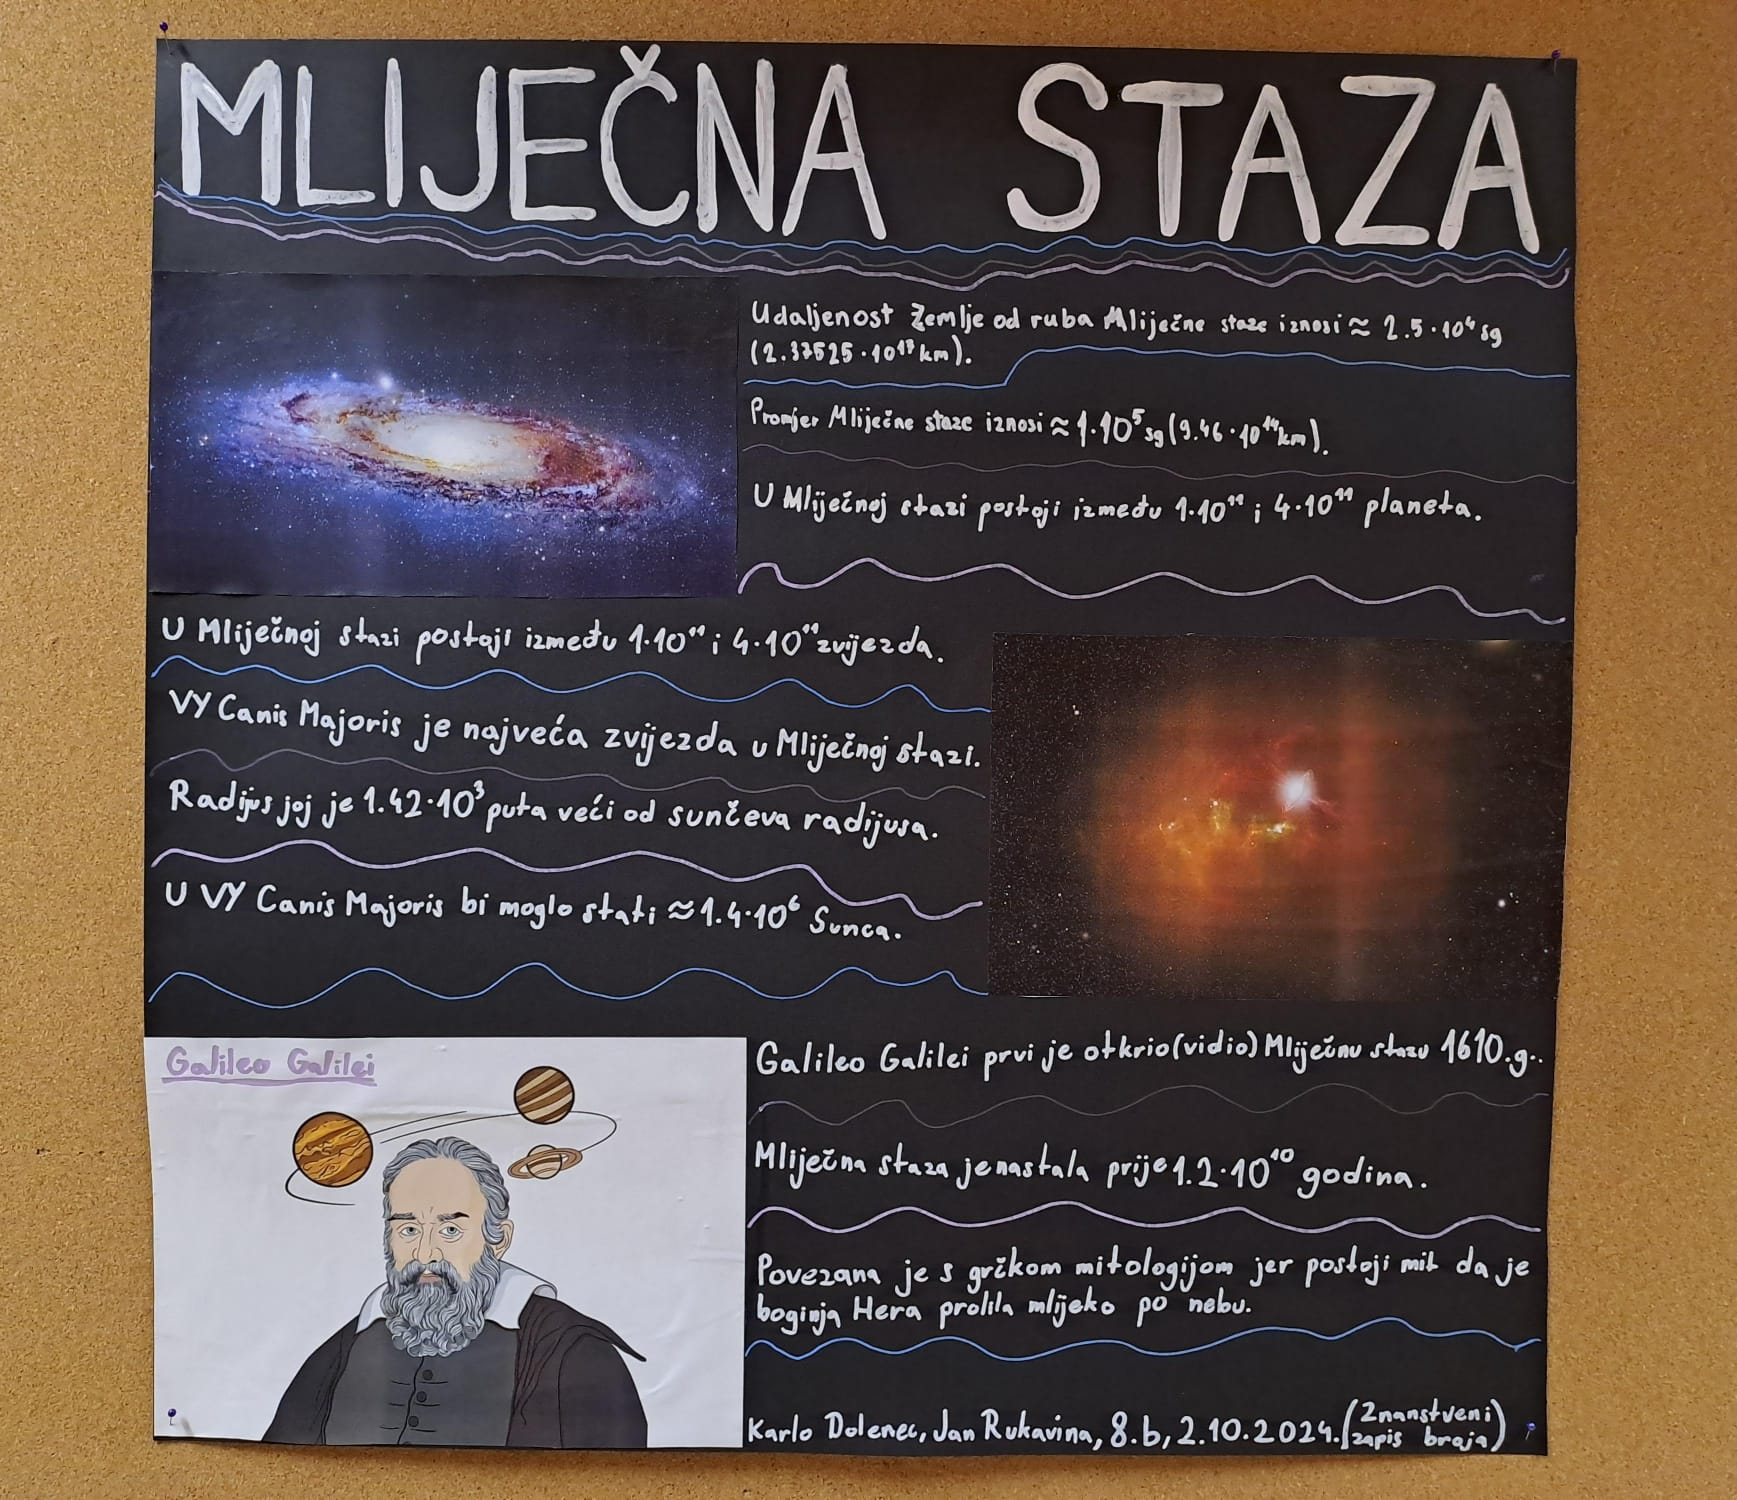 MLIJEČNA STAZA
Udaljenost Zemlje od ruba Mliječne staze iznosi ≈ 2.5·10⁴ sg
(2.37525·10¹⁷ km).
Promjer Mliječne staze iznosi ≈ 1·10⁵ sg (9.46·10¹⁴ km).
U Mliječnoj stazi postoji između 1·10¹¹ i 4·10¹¹ planeta.
U Mliječnoj stazi postoji između 1·10¹¹ i 4·10¹¹ zvijezda.
VY Canis Majoris je najveća zvijezda u Mliječnoj stazi.
Radijus joj je 1.42·10³ puta veći od sunčeva radijusa.
U VY Canis Majoris bi moglo stati ≈ 1.4·10⁶ Sunca.
Galileo Galilei
Galileo Galilei prvi je otkrio (vidio) Mliječnu stazu 1610.g..
Mliječna staza je nastala prije 1.2·10¹⁰ godina.
Povezana je s grčkom mitologijom jer postoji mit da je
boginja Hera prolila mlijeko po nebu.
Karlo Dolenec, Jan Rukavina, 8.b, 2.10.2024. (Znanstveni
zapis broja)